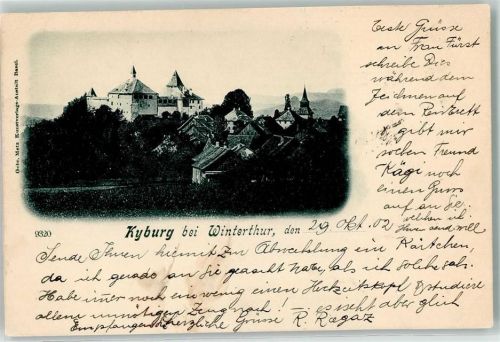 Gebr. Metz Kunstverlags-Anstalt Basel.
Beste Grüsse
an Frau Fürst
schreibe Dies
während dem
Zeichnen auf
dem
gibt mir
soeben Freund
Kägi noch
einen Gruss
auf an Sie,
welchen ich
Ihnen send. will
9320
Kyburg bei Winterthur, den 29 Okt. 02
Sende Ihnen hiemit zur Abwechslung ein Kärtchen,
da ich gerade an Sie gedacht habe, als ich solche sah.
Habe immer noch ein wenig einen & studiere
allem unnötigen Zeug nach! – es ist aber gleich
Empfangen herzliche Grüsse R. Ragaz